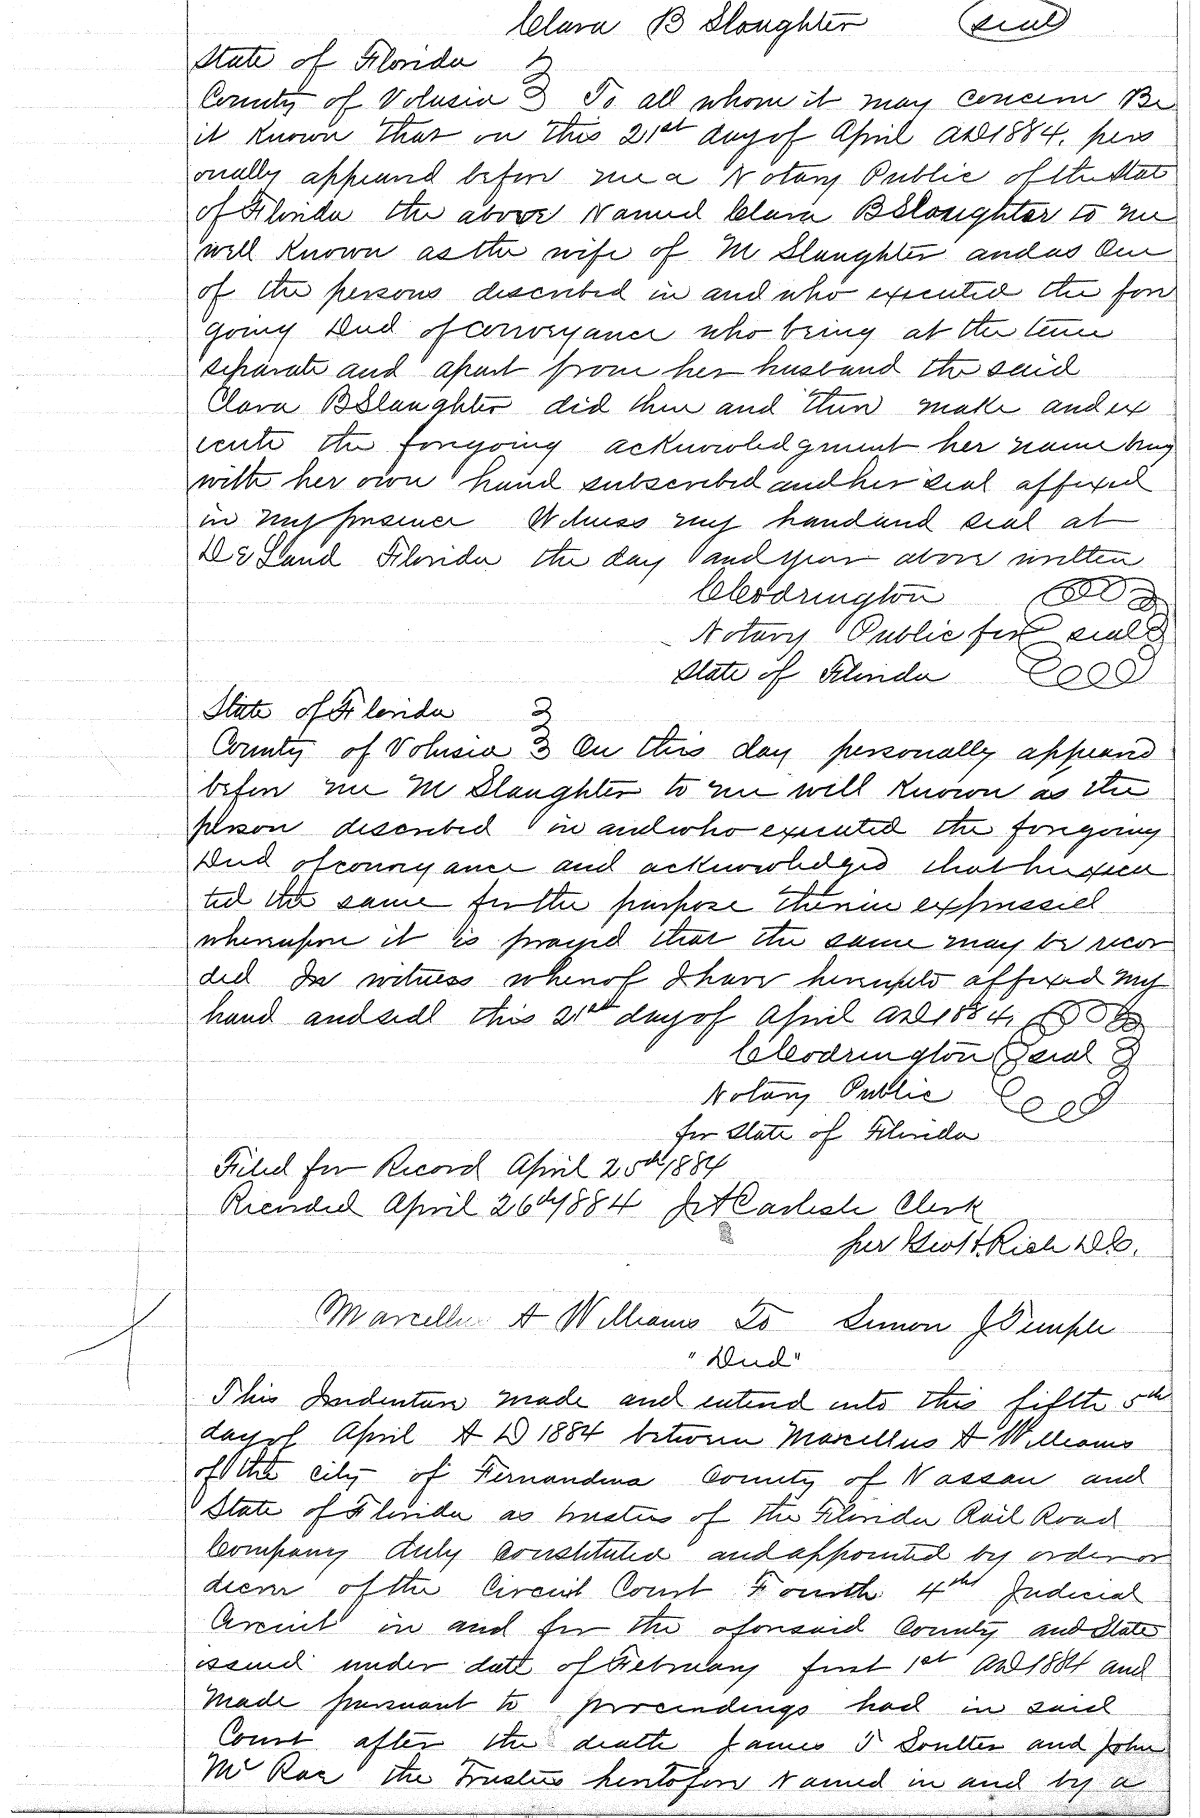 Clara B Slaughter (seal)
State of Florida
County of Volusia } To all whom it may concern Be
it Known that on this 21st day of April AD 1884. pers
onally appeared before me a Notary Public of the State
of Florida the above Named Clara B Slaughter to me
well Known as the wife of M Slaughter and as One
of the persons described in and who executed the fore
going Deed of conveyance who being at the time
separate and apart from her husband the said
Clara B Slaughter did then and there make and ex
ecute the foregoing acknowledgment her name being
with her own hand subscribed and her seal affixed
in my presence Witness my hand and seal at
De Land Florida the day and year above written
C Codrington
Notary Public for seal
State of Florida
State of Florida
County of Volusia } On this day personally appeared
before me M Slaughter to me well Known as the
person described in and who executed the foregoing
Deed of conveyance and acknowledged that he execu
ted the same for the purpose therein expressed
whereupon it is prayed that the same may be recor
ded In witness whereof I have hereunto affixed my
hand and seal this 21st day of April AD 1884.
C Codrington seal
Notary Public
for State of Florida
Filed for Record April 25th 1884
Recorded April 26th 1884 Jn A Carlisle Clerk
per Geo H. Rich D C.
Marcellus A Williams To Simon J Temple
"Deed"
This Indenture made and entered into this fifth 5th
day of April A D 1884 between Marcellus A Williams
of the city of Fernandina County of Nassau and
State of Florida as trustee of the Florida Rail Road
Company duly constituted and appointed by order or
decree of the Circuit Court Fourth 4th Judicial
Circuit in and for the aforesaid County and State
issued under date of February first 1st AD 1884 and
made pursuant to proceedings had in said
Court after the death James T Soulter and John
Mc Rae the Trustees heretofore Named in and by a